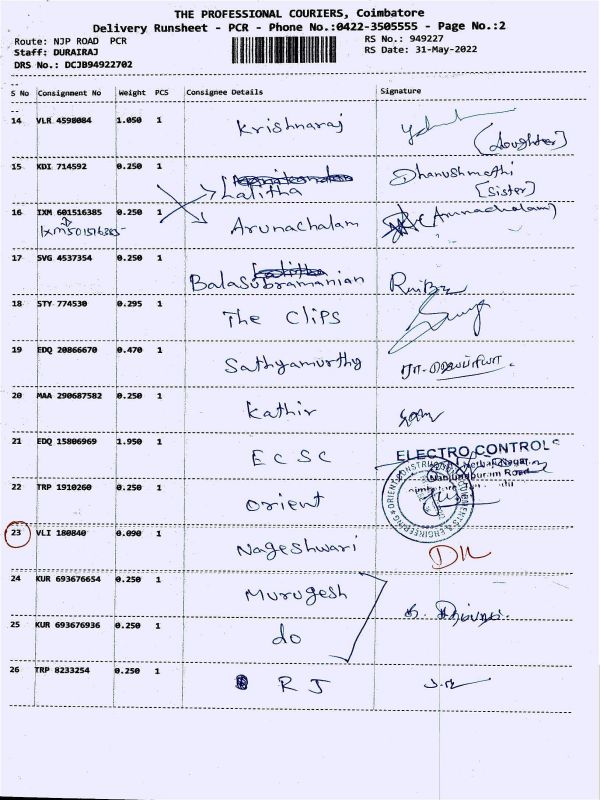 THE PROFESSIONAL COURIERS, Coimbatore
Delivery Runsheet - PCR - Phone No.:0422-3505555 - Page No.:2
Route: NJP ROAD PCR
RS No.: 949227
Staff: DURAIRAJ
RS Date: 31-May-2022
DRS No.: DCJB94922702
S No Consignment No Weight PCS Consignee Details Signature
14 VLR 4598084 1.050 1 Krishnaraj
[daughter]
15 KDI 714592 0.250 1 Lalitha Dhanushmathi
[Sister]
16 IXM 601516385 0.250 1 Arunachalam (Arunachalam)
IXM501516385
17 SVG 4537354 0.250 1 Balasubramanian
18 STY 774530 0.295 1 The Clips
19 EDQ 20866670 0.470 1 Sathyamurthy
20 MAA 290687582 0.250 1 Kathir
21 EDQ 15806969 1.950 1 ECSC
ELECTRO CONTROLS
Nanjundapuram Road
22 TRP 1910260 0.250 1 Orient
23 VLI 180840 0.090 1 Nageshwari DL
24 KUR 693676654 0.250 1 Murugesh
25 KUR 693676936 0.250 1 do
26 TRP 8233254 0.250 1 R J